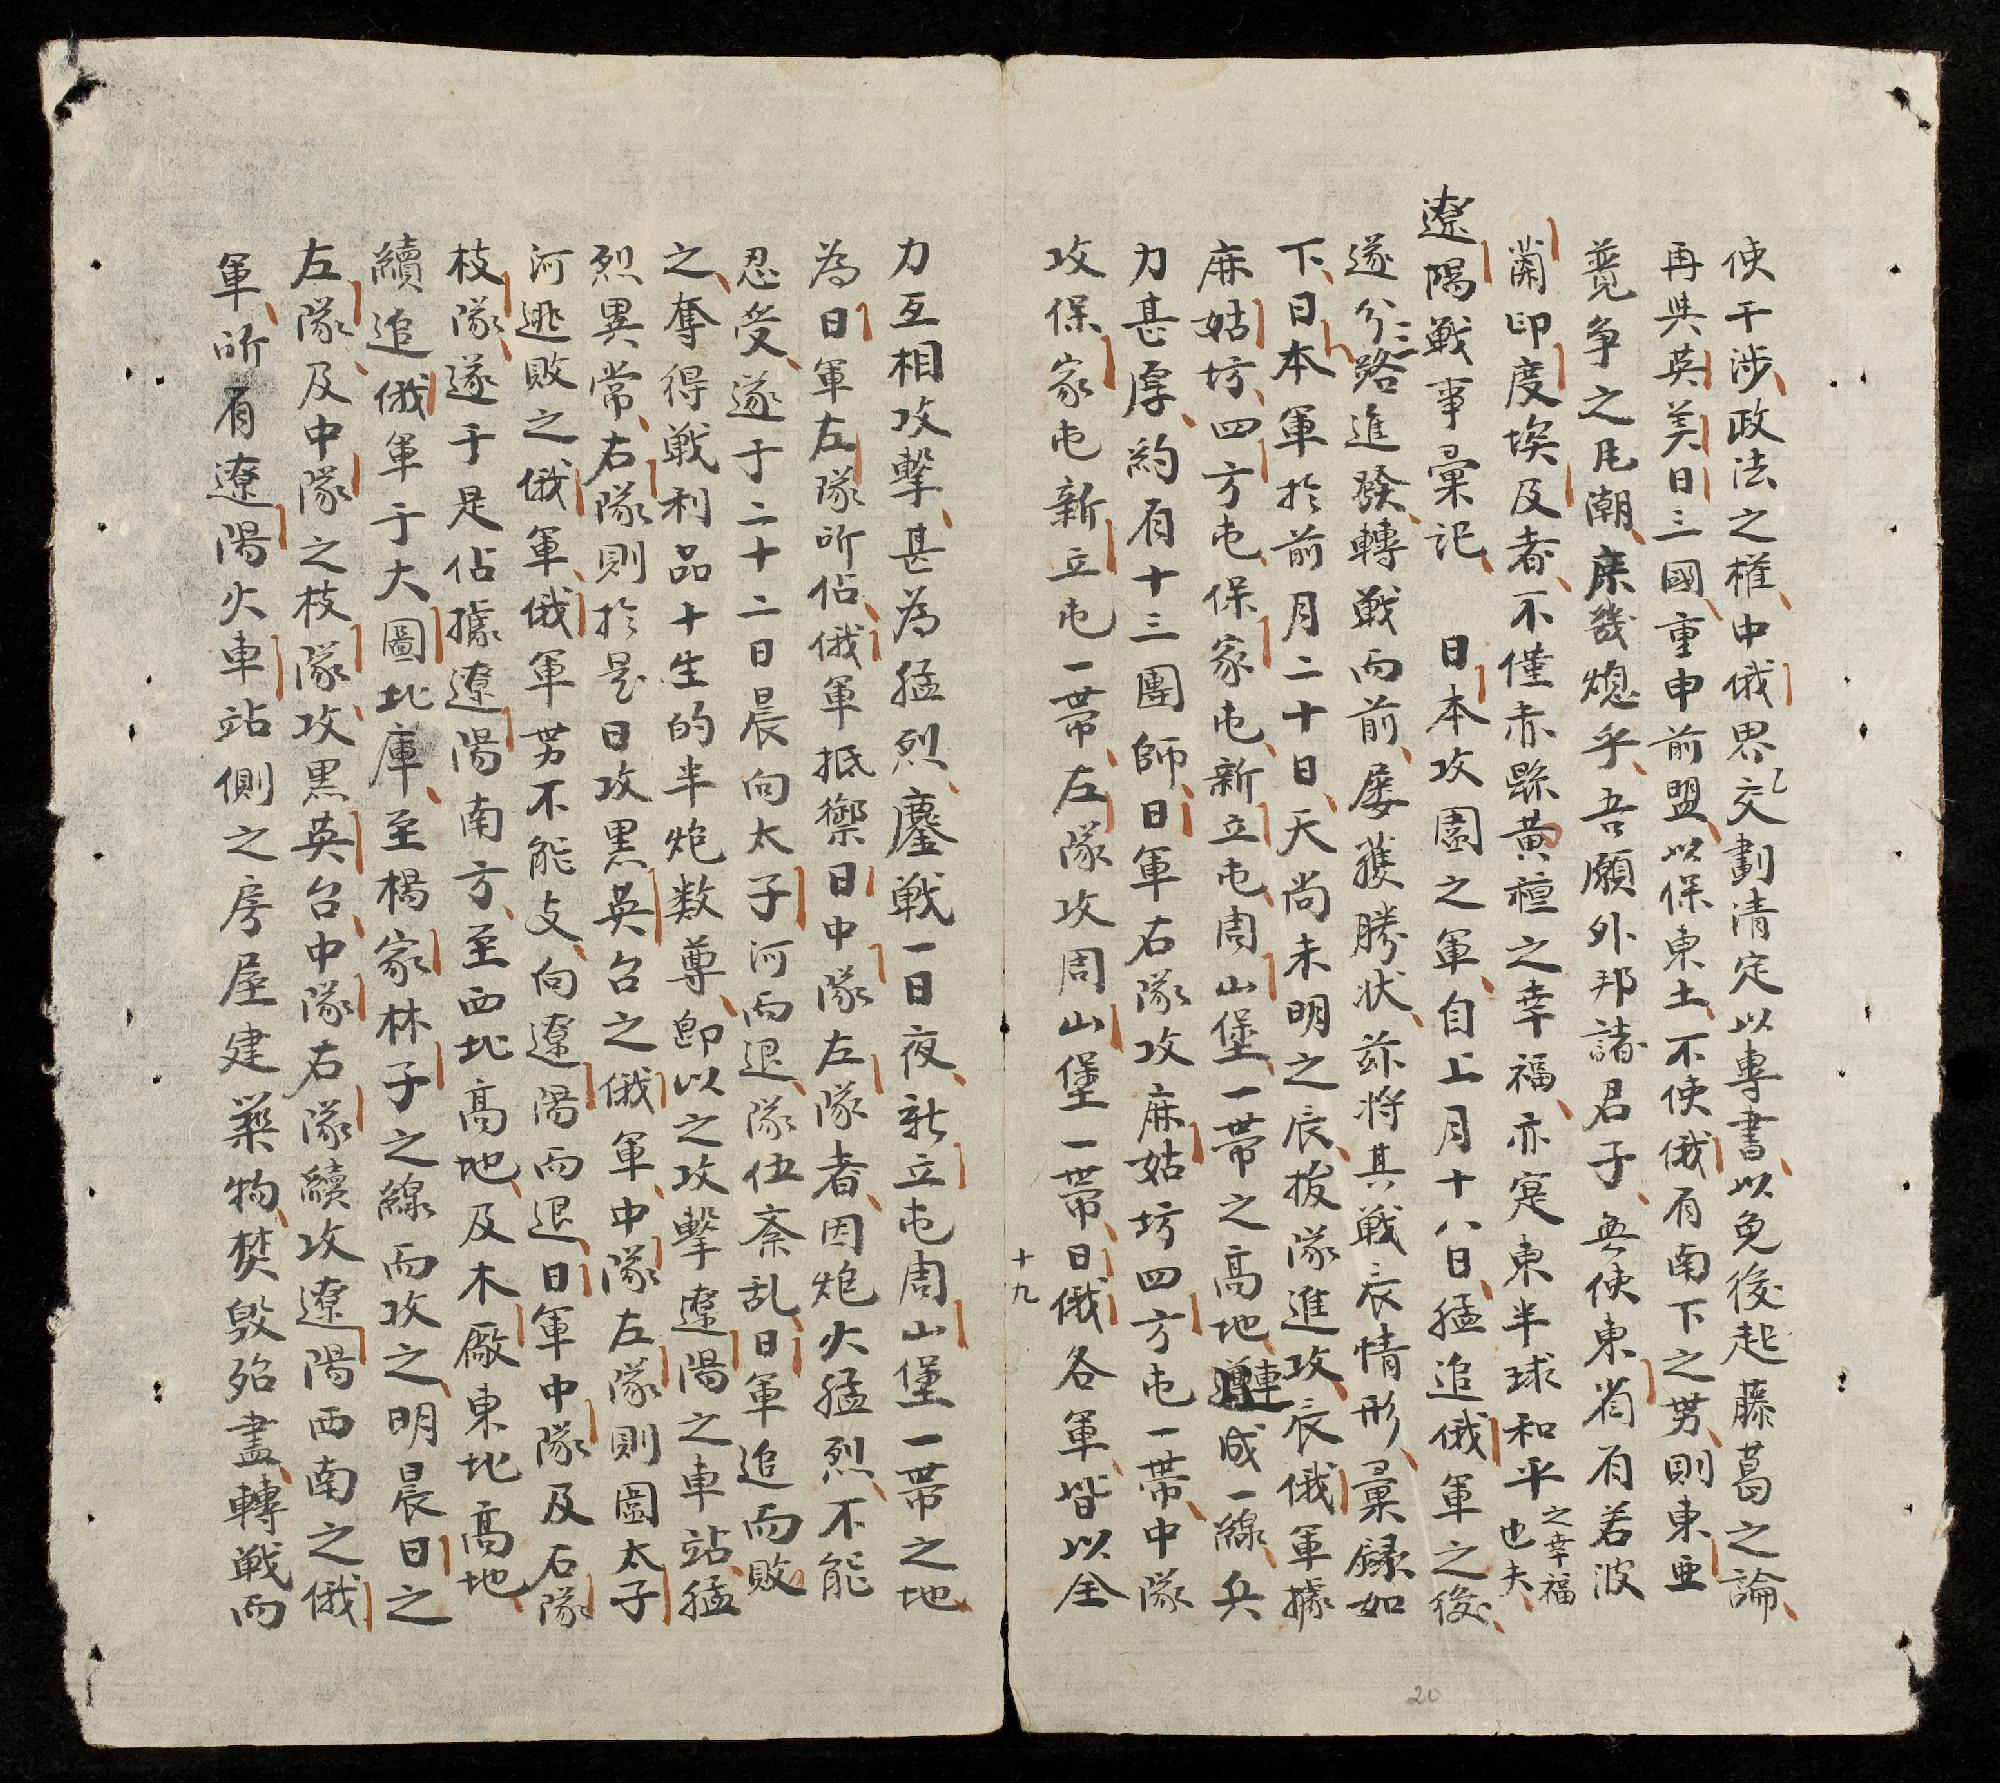 使干涉政法之權中俄界已交劃清定以專書以免後起藤葛之論
再與英美日三國重申前盟以保東土不使俄有南下之势則東亜
競争之凡潮庶幾熄乎吾願外邦諸君子無使東省有若波
蘭印度埃及者不僅赤縣黄種之幸福亦寔東半球和平之幸福也夫
遼陽戦事彙记 日本攻圍之軍自上月十八日猛追俄軍之後
遂分三路進發轉戦而前屡獲勝状茲将其戦辰情形彙録如
下日本軍扵前月二十日天尚未明之辰拔隊進攻辰俄軍據
麻姑坊四方屯保家屯新立屯周山堡一帯之高地連成一線兵
力甚厚約有十三團師日軍右隊攻麻姑坊四方屯一帯中隊
攻保家屯新立屯一帯左隊攻周山堡一帯日俄各軍皆以全
十九
力互相攻撃甚為猛烈鏖戦一日夜新立屯周山堡一帯之地
為日軍左隊所佔俄軍抵禦日中隊左隊者因炮火猛烈不能
忍受遂于二十二日晨向太子河而退隊伍紊乱日軍追而敗
之奪得戦利品十生的半炮数尊即以之攻撃遼陽之車站猛
烈異常右隊則扵是日攻黒英台之俄軍中隊左隊則圖太子
河逃敗之俄軍俄軍势不能支向遼陽而退日軍中隊及右隊
枝隊遂于是佔據遼陽南方至西北高地及木廠東北高地
續追俄軍于大圖北庫至楊家林子之線而攻之明晨日之
左隊及中隊之枝隊攻黒英台中隊右隊續攻遼陽西南之俄
軍所有遼陽火車站側之房屋建築物焚毁殆盡轉戦而
20